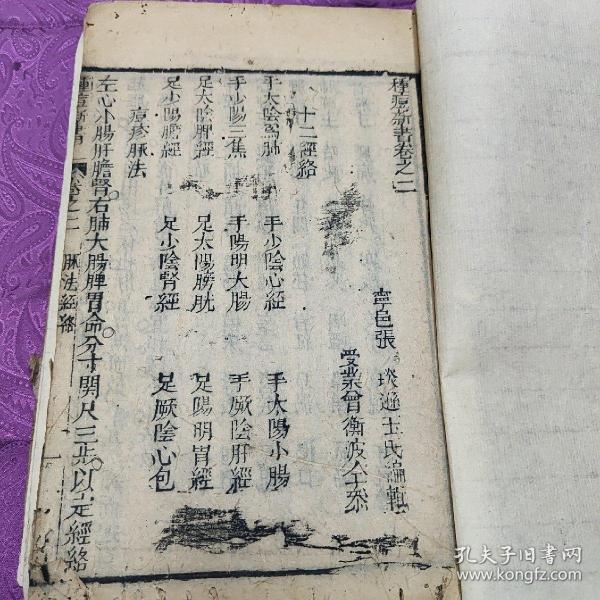 種痘新書卷之二
寧邑張 琰遜玉氏編輯
受業曾衡波全叅
十二經絡
手太陰爲肺 手少陰心經 手太陽小腸
手少陽三焦 手陽明大腸 手厥陰肝經
足太陰脾經 足太陽膀胱 足陽明胃經
足少陽膽經 足少陰腎經 足厥陰心包
痘疹脉法
左心小腸肝膽腎右肺大腸脾胃命分寸関尺三步以定經絡
種痘新書 卷之二 脉法經絡 一
孔夫子旧书网
www.kongfz.com